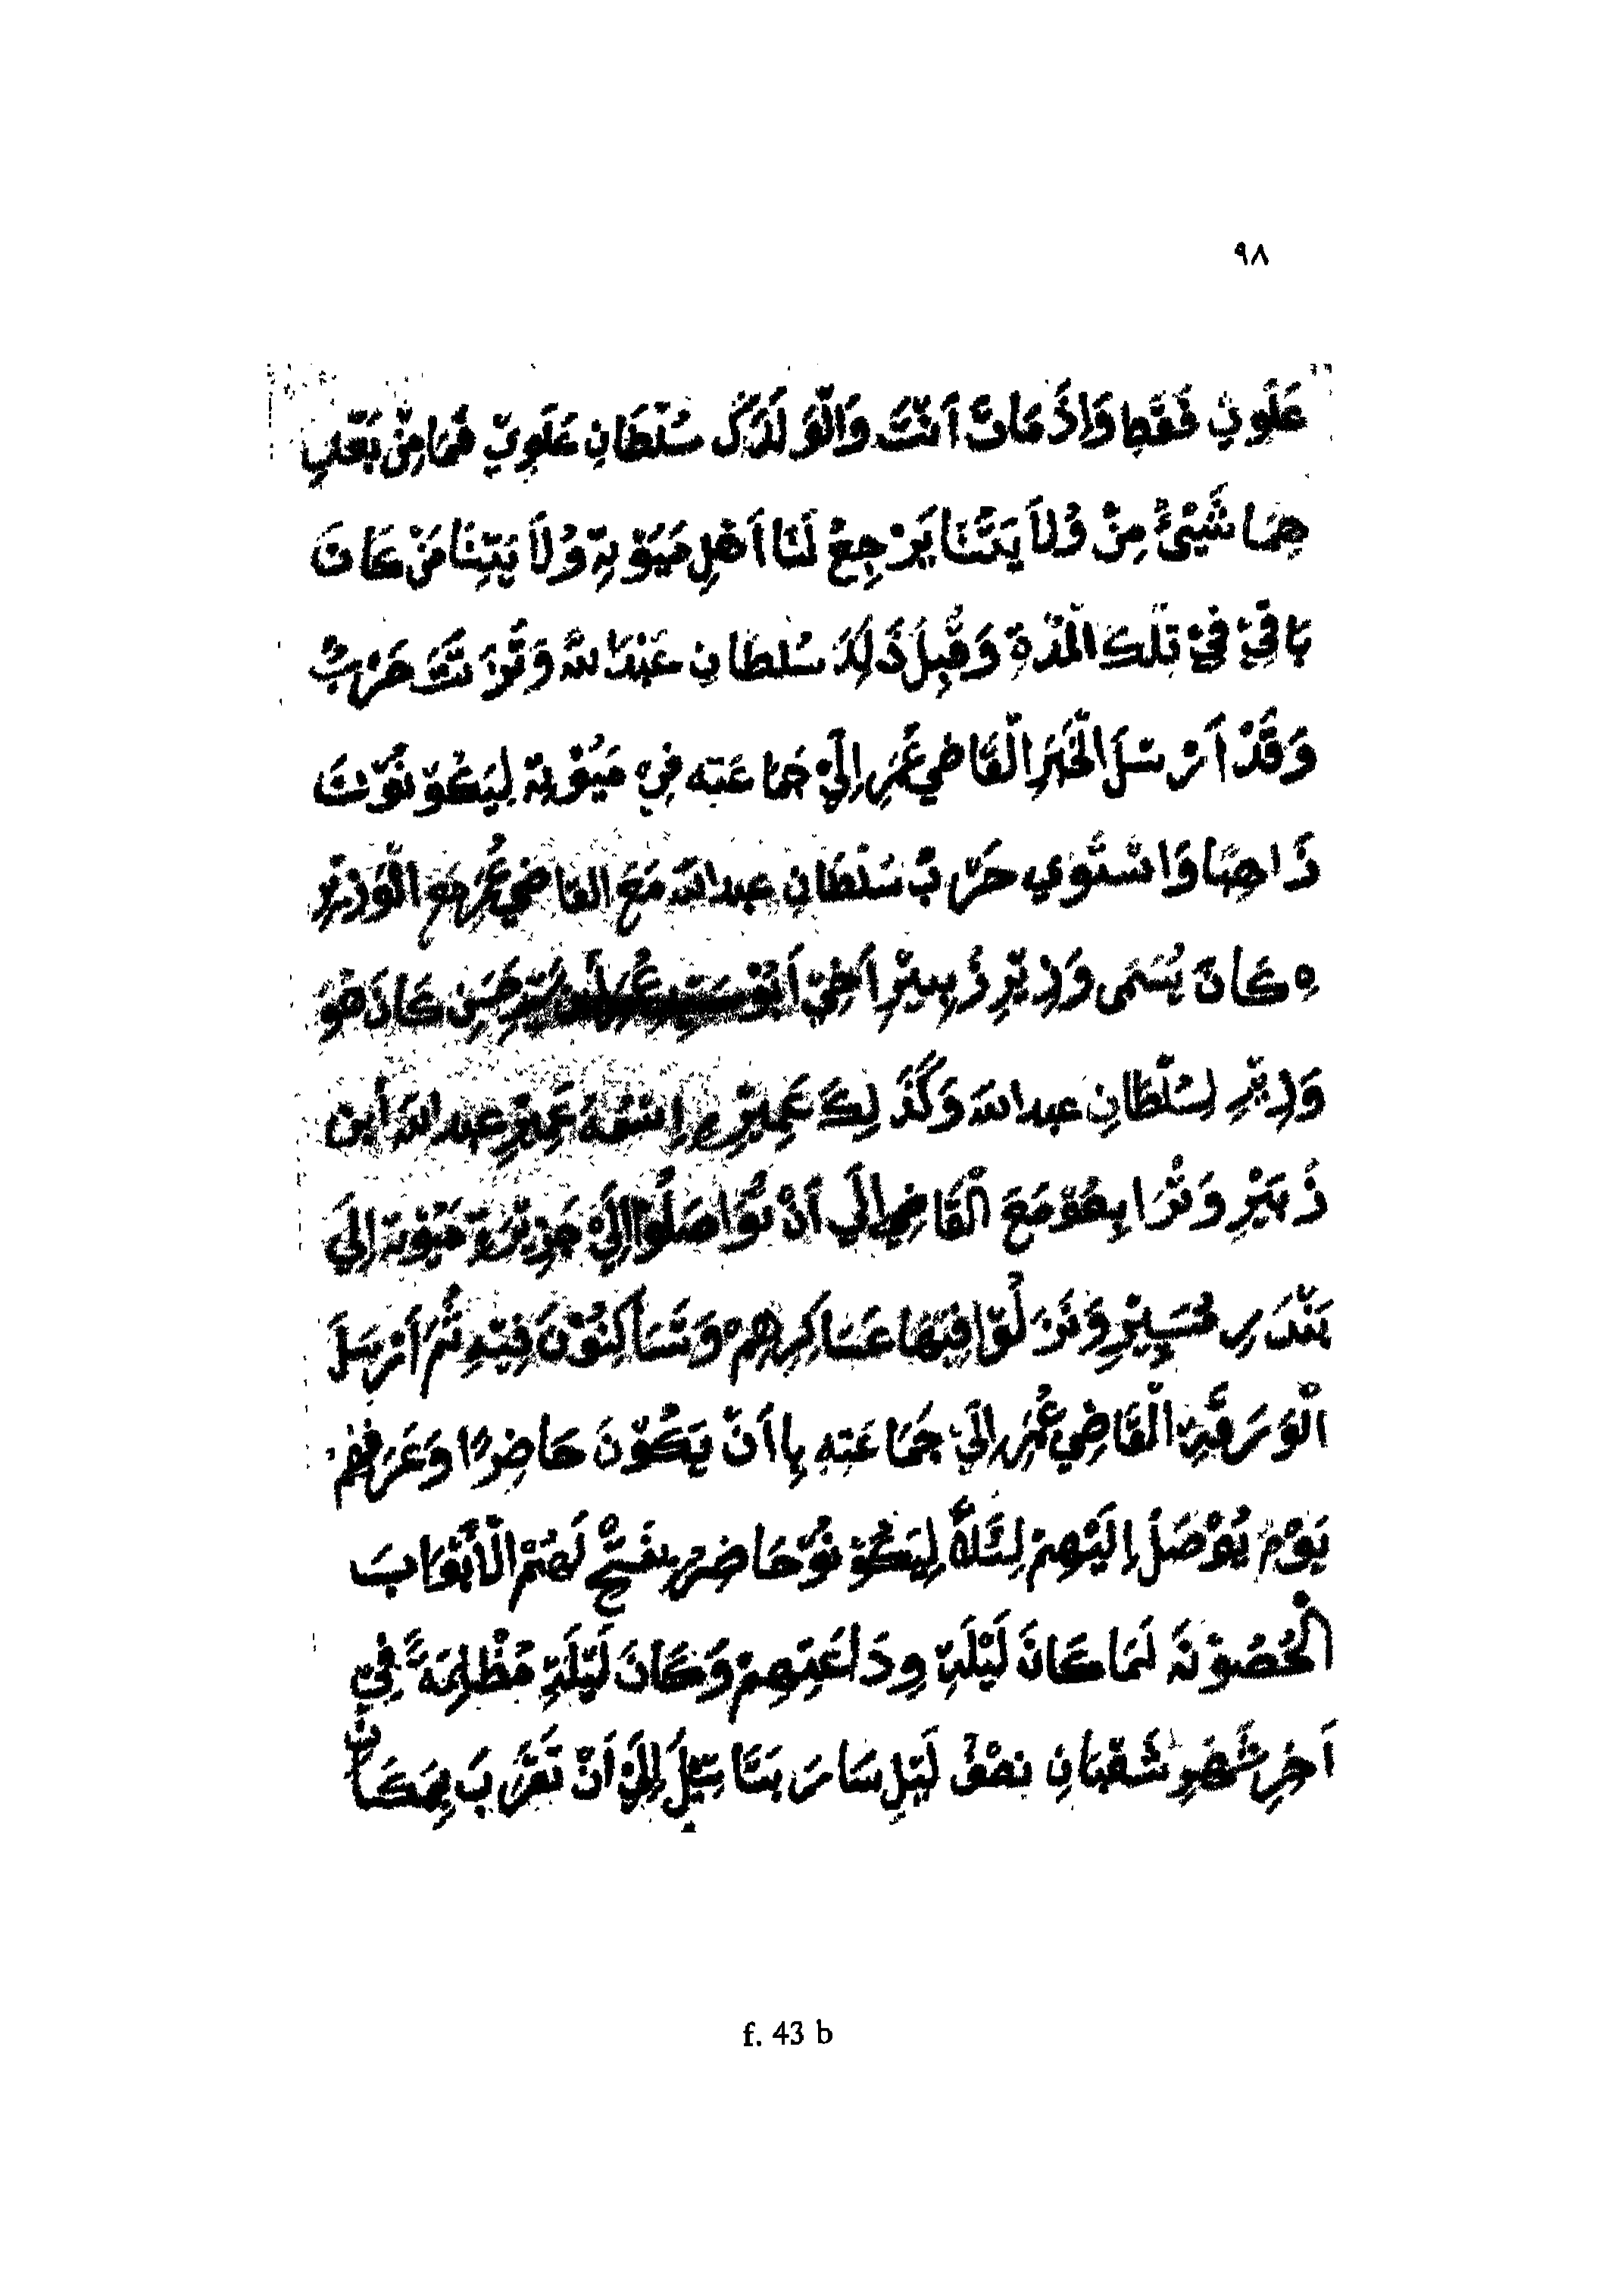 ٩٨
عَلَوِيِ فَقَطِ وَاِذَ مَاتَ اَنْتَ وَالْوَلَدَكَ سُلْطَانِ عَلَوِيْ فَمَا مِنْ بَعْدِ
هِمَا شَيْئُ مِنْ وُلاَ يَتَنَا يَرْجِعُ لَنَا اَهْلِ مَيَوْتِةْ وُلاَ يَتِنَا مَنْ كَانَ
بَاقِيْ فِيْ تِلْكَ الْمُدَّةِ وَقَبِلَ ذَلِكَ سُلطَانِ عَبْدَاللهْ وَثَرَتَتَ حَرْبُ
وَقَدْ اَرْسَلَ الْخَبَرِ الْقَاضِي عُمَرِ اِلَيْ جَمَاعَتِه فِيْ مَيُوْتِةْ لِيَكُوْنُوْتَ
ذَاهِبًا وَاسْتَوِي حَرْبُ سُلْطَانِ عبدالله مَعَ القاضِي عُمَرِ مَعَ الْوَزِيْرِ
هِ كَانَ يُسَمَى وَزِيْرِ زُبِيْرْ اَخِيْ اَبُوْ حَسَنِ كَانَ هُوَ
وَزِيْرِ لسُلْطَانِ عبدالله وَكَذَلِكَ عَمِيْرْ اِسْمُهُ عَمِيْرِ عبدالله اَبن
زُبَيْرِ وَتْرَابِعُوْ مَعَ الْقَاضِي اِلَي اَنْ تُوَاصَلُوْا اِلَيْ جَزِيْرَةِ مَيُوْتِة اِلَيَ
بَنْدَرِ مُسَپِيْرِ وَنَزَلُوْا فِيْهَا عَسَاكِرِهِمْ وَتَسَاكِنُوْنَ فِيْهِ ثُمَ اَرْسَلَ
الْوَرَقَةِ الْقَاضِي عُمَرِ اِلَيَ جَمَاعَتِهِ بِااَنْ يَكُوْنَ حَاضِرًا وَعَرَفَهُمْ
يَوْمُ يُوْصَلُ اِلَيْهِمْ لِئَلَهً لِيَكُوْنُوْ حَاضِرُ بِفَتْحِ لَهُمْ الْاَبْوَابَ
الْحُصُوْنَهَ لَمَا كَانَ لَيْلَةِ وِدَاعَتِهِمْ وَكَانَ لَيْلَةِ مُظْلِمَةً فِيْ
اَخِرِ شَهْرِ شَعْبَانِ نِصْفُ لَيْلِ سَارَ بَنَاسِيْلَ اِلَيَ اَنْ تَقَرَّبَ بِمَكَانٍ
f. 43 b